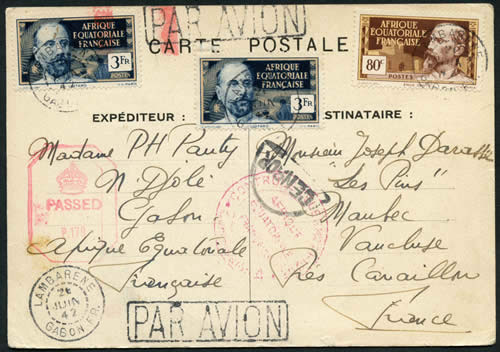 PAR AVION
AFRIQUE
EQUATORIALE
FRANÇAISE
3FR
POSTES
CARTE POSTALE
AFRIQUE
EQUATORIALE
FRANÇAISE
3FR
POSTES
AFRIQUE
EQUATORIALE
FRANÇAISE
80c
POSTES
EXPÉDITEUR :
Madame PH Pauly
N'Djolé
Gabon
Afrique Equatoriale
Française
STINATAIRE :
Monsieur Joseph
"Les Pins"
Maubec
Vaucluse
Près Cavaillon
France
PASSED
P.170
CENSOR
LAMBARENE
26
JUIN
42
GABON FR.
PAR AVION